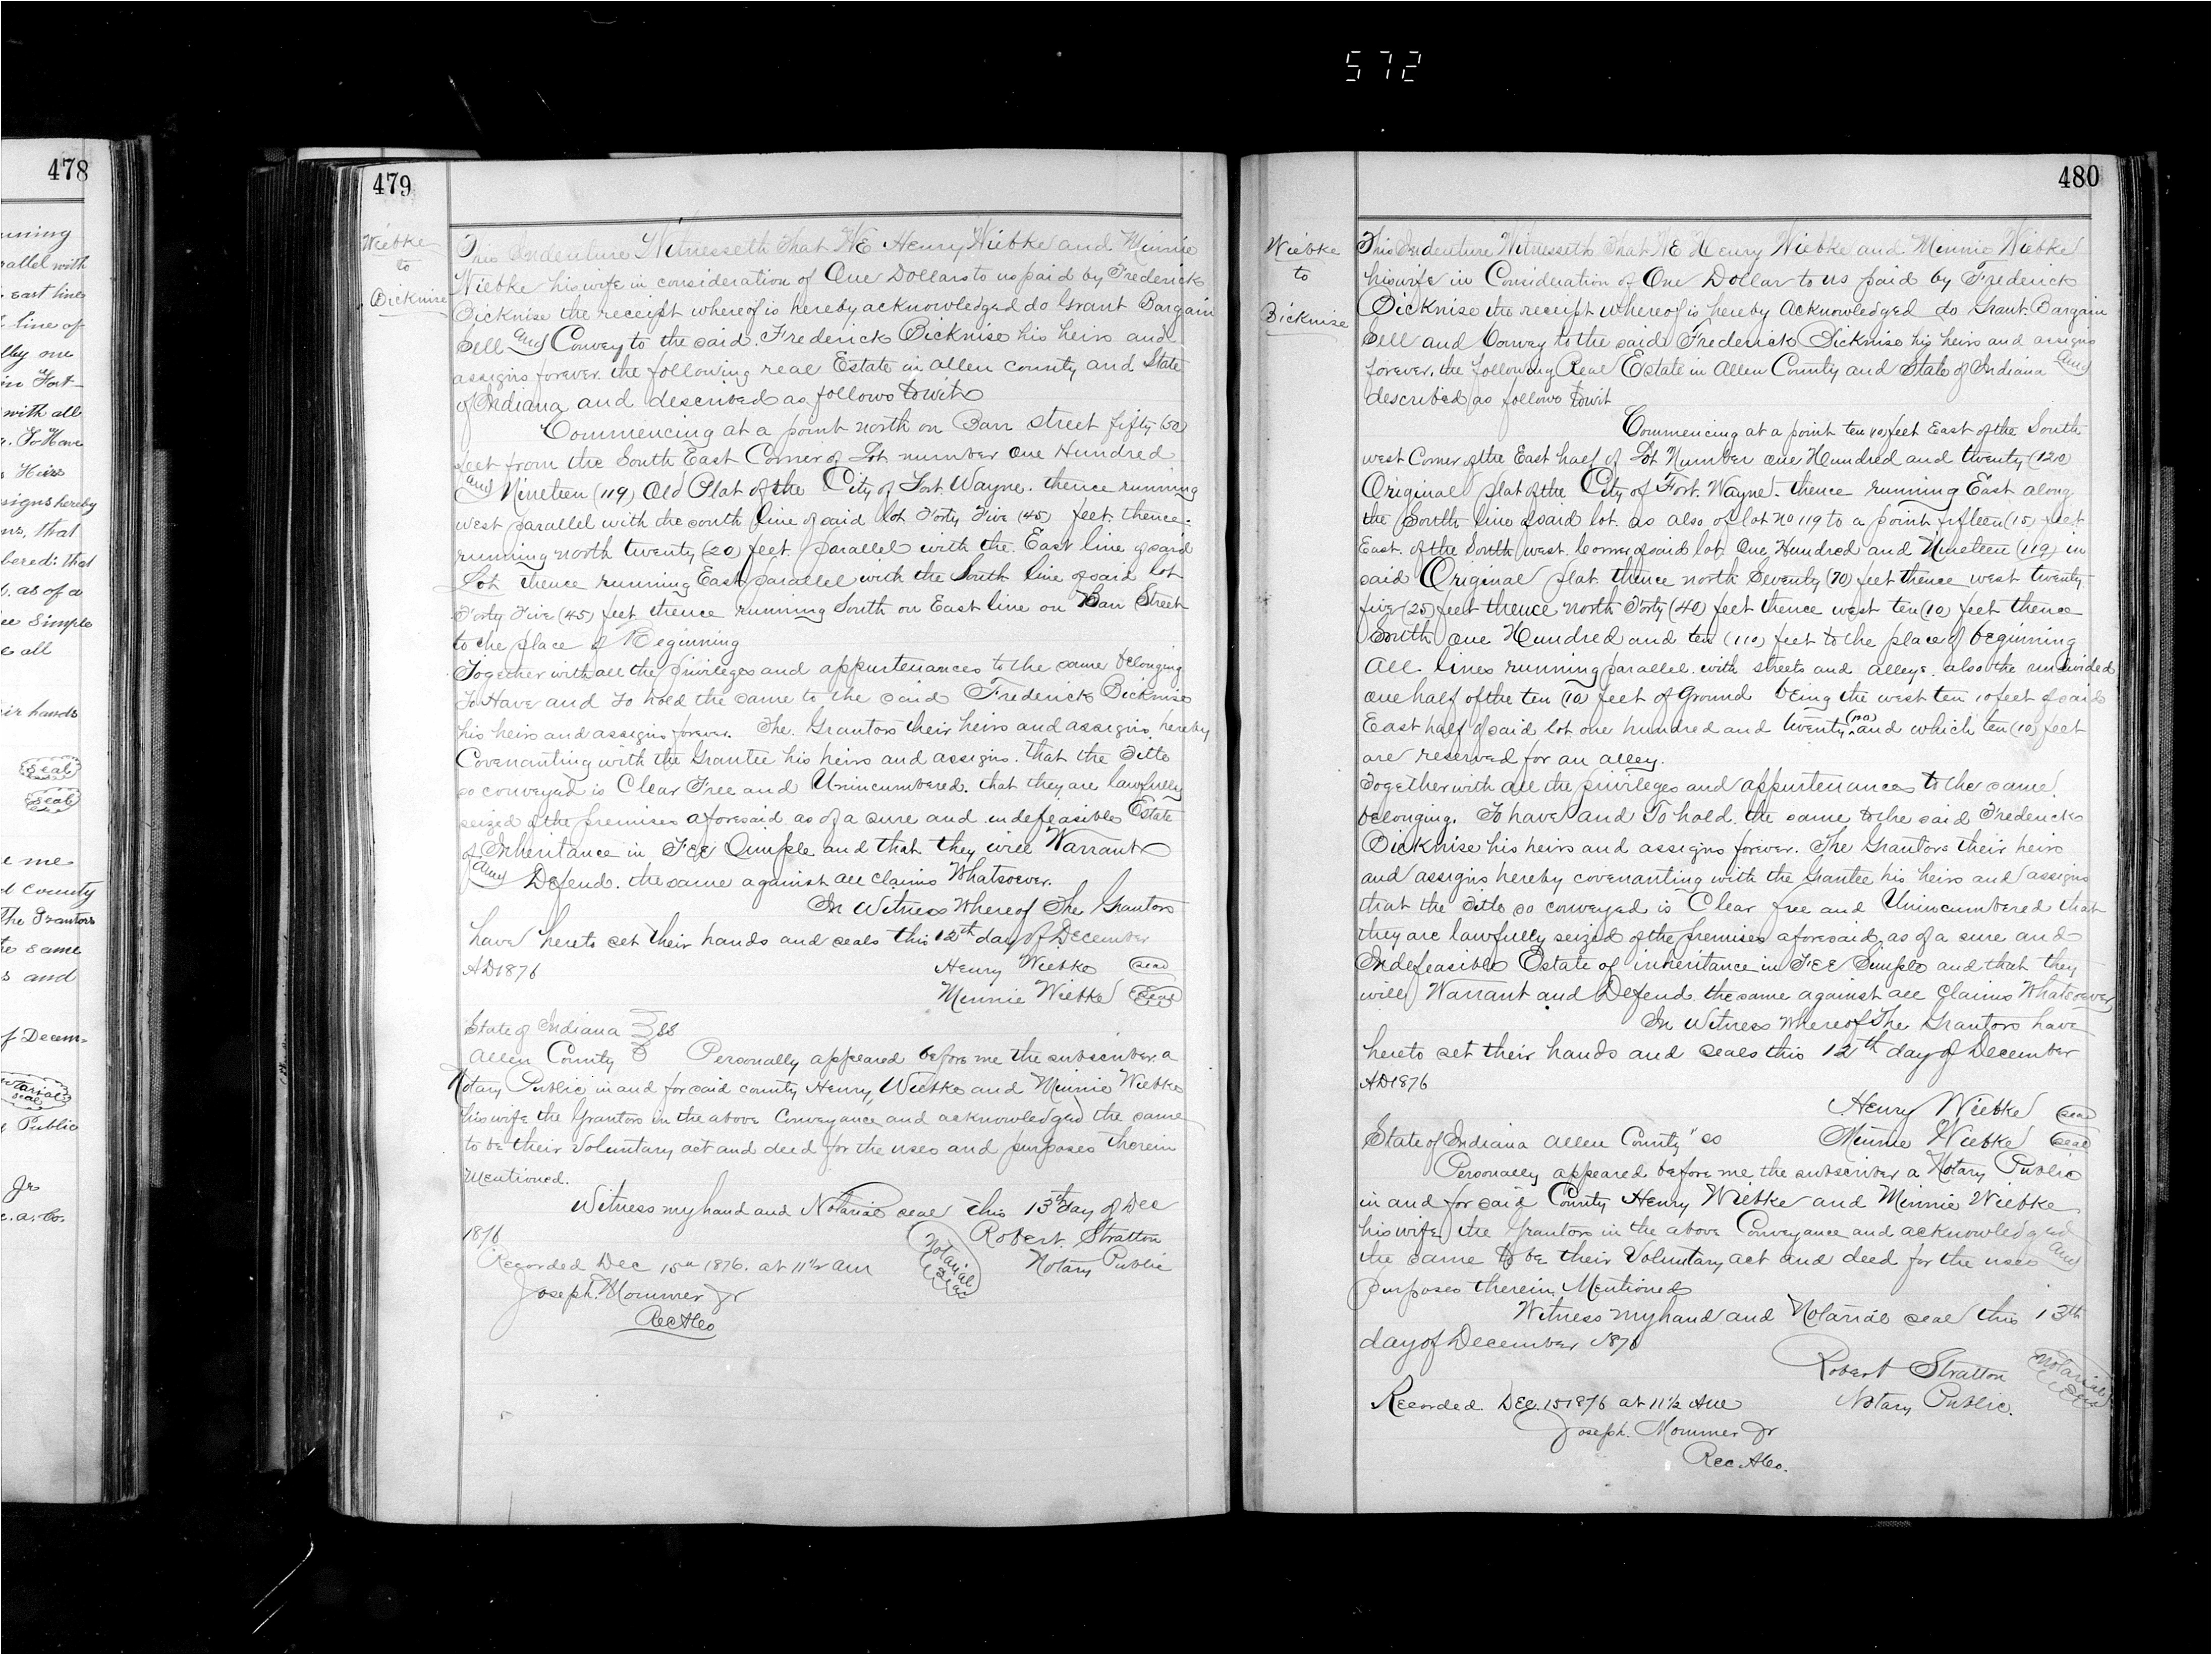 572
478
unning
rallel with
East line
line of
lley one
in Fort
with all
To Have
Heirs
signs hereby
ns, that
bered: that
as of a
ee Simple
e all
eir hands
Seal
Seal
e me
d County
The Grantors
te same
s and
of Decem-
Notarial
seal
Public
Jr
479
Wiebke
to
Dicknise
This Indenture Witnesseth That WE Henry Wiebke and Minnie
Wiebke his wife in consideration of One Dollars to us paid by Frederick
Dicknise the receipt whereof is hereby acknowledged do Grant Bargain
Sell and Convey to the said Frederick Dicknise his heirs and
assigns forever. the following real Estate in allen county and State
of Indiana and described as follows towit
Commencing at a point north on Barr street fifty (50)
feet from the South East Corner of Lot number One Hundred
and Nineteen (119) Old Plat of the City of Fort Wayne. thence running
west parallel with the south line of said lot Forty Five (45) feet. thence
running north twenty (20) feet. parallel with the East line of said
Lot thence running East parallel with the South line of said lot
Forty Five (45) feet thence running South on East line on Barr Street
to the place of Beginning
Together with all the privileges and appurtenances to the same belonging
To Have and To hold the same to the said Frederick Dicknise
his heirs and assigns forever. The Grantors their heirs and assigns hereby
Covenanting with the Grantee his heirs and assigns. that the Title
so conveyed is Clear Free and Unincumbered. that they are lawfully
seized of the premises aforesaid. as of a sure and indefeasible Estate
of Inheritance in FEE Simple and that they will Warrant
and Defend. the same against all claims Whatsoever.
In Witness Whereof The Grantors
have hereto set their hands and seals this 12th day of December
AD1876 Henry Wiebke seal
Minnie Wiebke Seal
State of Indiana } SS
Allen County } Personally appeared before me the subscriber a
Notary Public in and for said county Henry Wiebke and Minnie Wiebke
his wife the Grantors in the above Conveyance and acknowledged the same
to be their Voluntary act and deed for the uses and purposes therein
Mentioned.
Witness my hand and Notarial seal this 13th day of Dec
1876 Robert Stratton
Notarial Seal
Notary Public
Recorded Dec 15th 1876. at 11½ am
Joseph Mommer Jr
Rec ACo
480
Wiebke
to
Dicknise
This Indenture Witnesseth That WE Henry Wiebke and Minnie Wiebke
his wife in Consideration of One Dollar to us paid by Frederick
Dicknise the receipt whereof is hereby Acknowledged do Grant. Bargain
Sell and Convey to the said Frederick Dicknise his heirs and assigns
forever, the following Real Estate in Allen County and State of Indiana and
described as follows towit
Commencing at a point ten (10) feet East of the South
west Corner of the East half of Lot Number One Hundred and twenty (120)
Original plat of the City of Fort. Wayne. thence running East along
the South line of said lot. as also of lot no 119 to a point fifteen (15) feet
East. of the South west Corner of said lot. One Hundred and Nineteen (119) in
said Original plat. thence north Seventy (70) feet thence west twenty
five (25) feet thence north Forty (40) feet thence west ten (10) feet thence
South one Hundred and ten (110) feet to the place of beginning
All lines running parallel with streets and alleys. also the undivided
one half of the ten (10) feet of Ground being the west ten 10 feet of said
East half of said lot one hundred and twenty (120) and which ten (10) feet
are reserved for an alley.
Together with all the privileges and appurtenances to the same
belonging. To have and To hold the same to the said Frederick
Dicknise his heirs and assigns forever. The Grantors their heirs
and assigns hereby covenanting with the Grantee his heirs and assigns
that the Title so conveyed is Clear free and Unincumbered that
they are lawfully seized of the premises aforesaid, as of a sure and
Indefeasible Estate of inheritance in FEE Simple and that they
will Warrant and Defend the same against all Claims Whatsoever
In Witness Whereof The Grantors have
hereto set their hands and seals this 12th day of December
AD1876
Henry Wiebke seal
State of Indiana Allen County "SS Minnie Wiebke seal
Personally appeared before me the subscriber a Notary Public
in and for said County Henry Wiebke and Minnie Wiebke
his wife the Grantors in the above Conveyance and acknowledged
the same to be their Voluntary act and deed for the uses and
purposes therein Mentioned
Witness my hand and Notarial seal this 13th
day of December 1876
Robert Stratton
Notarial Seal
Recorded Dec. 15 1876 at 11½ AM Notary Public.
Joseph. Mommer Jr
Rec ACo.